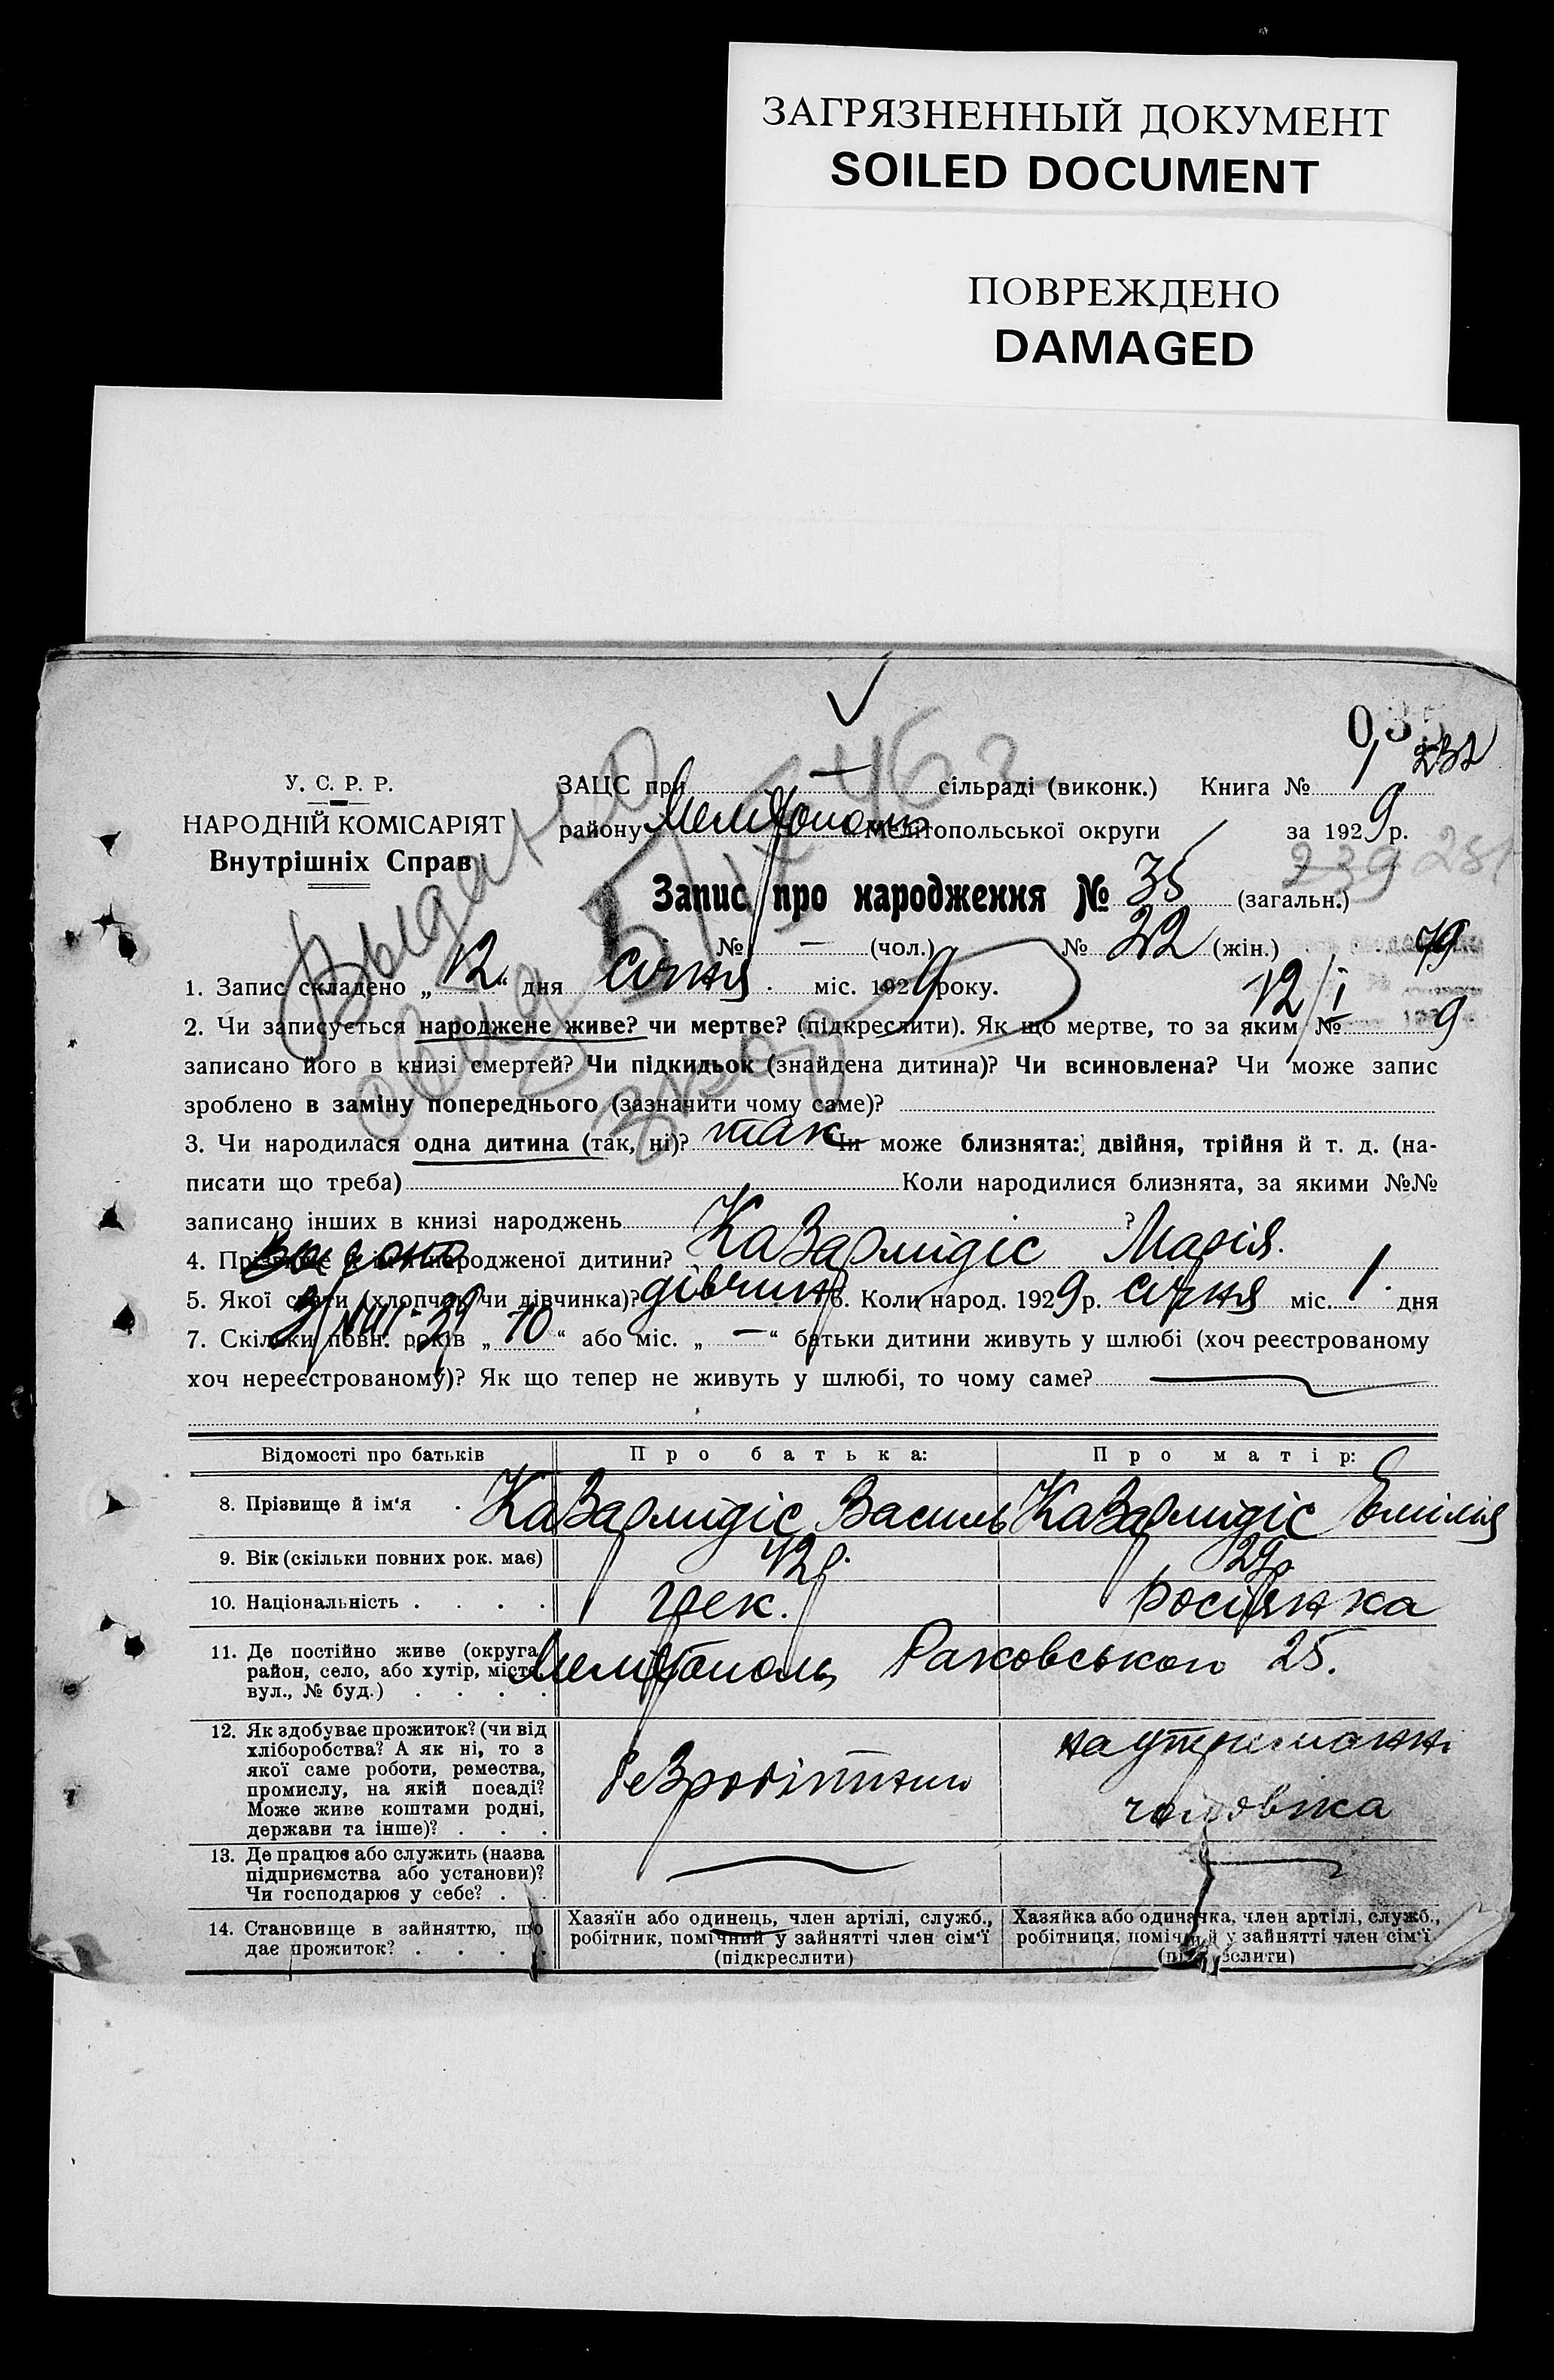 ЗАГРЯЗНЕННЫЙ ДОКУМЕНТ
SOILED DOCUMENT
ПОВРЕЖДЕНО
DAMAGED
035
232
У. С. Р. Р.
НАРОДНІЙ КОМІСАРІЯТ
Внутрішніх Справ
ЗАЦС при — сільраді (виконк.) Книга № 1
району Мелітополь Мелітопольської округи за 1929 р.
239 251
Запис про народження № 35 (загальн.)
№ — (чол.) № 22 (жін.)
49
Выдано
1. Запис складено „12“ дня січня міс. 1929 року.
12/I
2. Чи записується народжене живе? чи мертве? (підкреслити). Як що мертве, то за яким № 9
записано його в книзі смертей? Чи підкидьок (знайдена дитина)? Чи всиновлена? Чи може запис
зроблено в заміну попереднього (зазначити чому саме)?
3. Чи народилася одна дитина (так, ні)? так Чи може близнята: двійня, трійня й т. д. (на-
писати що треба) Коли народилися близнята, за якими №№
записано інших в книзі народжень ?
4. Прізвище й ім'я народженої дитини? Казармидіс Марія.
5. Якої стати (хлопчик чи дівчинка)? дівчина 6. Коли народ. 1929 р. січня міс. 1 дня
7. Скільки повн. років „10“ або міс. „—“ батьки дитини живуть у шлюбі (хоч реєстрованому
хоч нереєстрованому)? Як що тепер не живуть у шлюбі, то чому саме? —
Відомості про батьків Про батька: Про матір:
8. Прізвище й ім'я . Казармидіс Василь Казармидіс Емілія
9. Вік (скільки повних рок. має) 42р. 29р
10. Національність . . . . грек. росіянка
11. Де постійно живе (округа,
район, село, або хутір, місто,
вул., № буд.) . . . .
Мелітополь Раковського 25.
12. Як здобуває прожиток? (чи від
хліборобства? А як ні, то з
якої саме роботи, ремества,
промислу, на якій посаді?
Може живе коштами родні,
держави та інше)? . . .
безробітний
на утриманні
чоловіка
13. Де працює або служить (назва
підприємства або установи)?
Чи господарює у себе? . .
— —
14. Становище в зайняттю, що
дає прожиток? . . . .
Хазяїн або одинець, член артілі, служб.,
робітник, помічний у зайнятті член сім'ї
(підкреслити)
Хазяйка або одиначка, член артілі, служб.,
робітниця, помічний у зайнятті член сім'ї
(підкреслити)